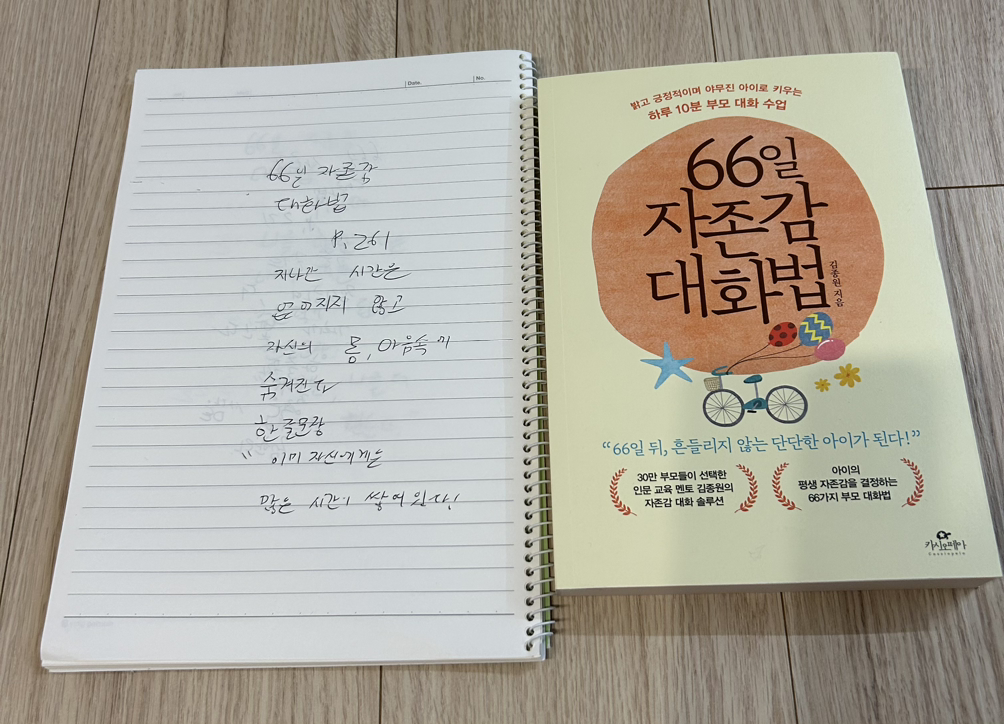 Date.
No.
66일 자존감
대화법
P. 261
지나간 시간은
없어지지 않고
자신의 몸, 마음속에
숨겨진다
한글모랑
" 이미 자신에게는
많은 시간이 쌓여있다!
밝고 긍정적이며 야무진 아이로 키우는
하루 10분 부모 대화 수업
66일
자존감
대화법
김종원 지음
“66일 뒤, 흔들리지 않는 단단한 아이가 된다!”
30만 부모들이 선택한
인문 교육 멘토 김종원의
자존감 대화 솔루션
아이의
평생 자존감을 결정하는
66가지 부모 대화법
카시오페아
Cassiopeia